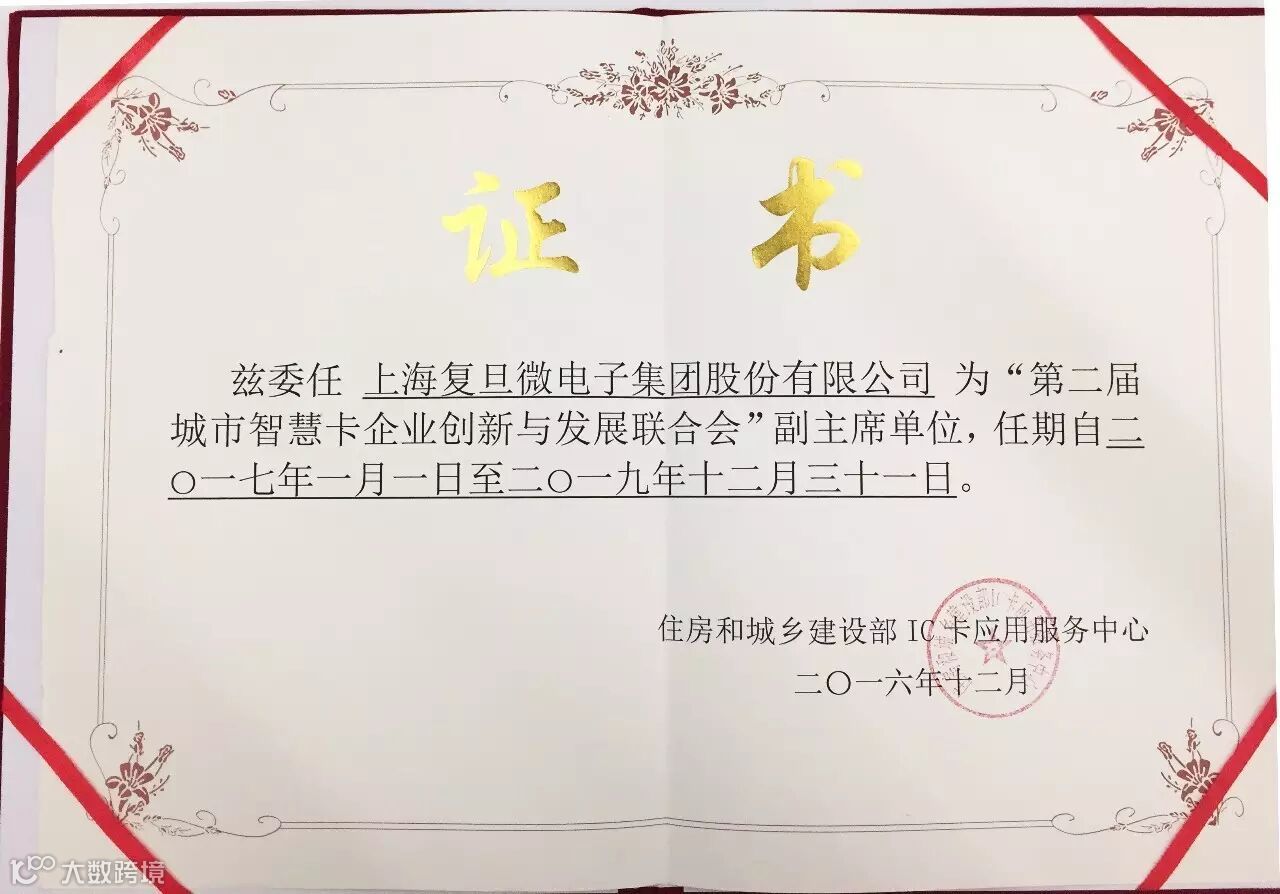 证 书
兹委任 上海复旦微电子集团股份有限公司 为“第二届
城市智慧卡企业创新与发展联合会”副主席单位，任期自二
〇一七年一月一日至二〇一九年十二月三十一日。
住房和城乡建设部 IC 卡应用服务中心
二〇一六年十二月
住房和城乡建设部IC卡应用服务中心
大数跨境